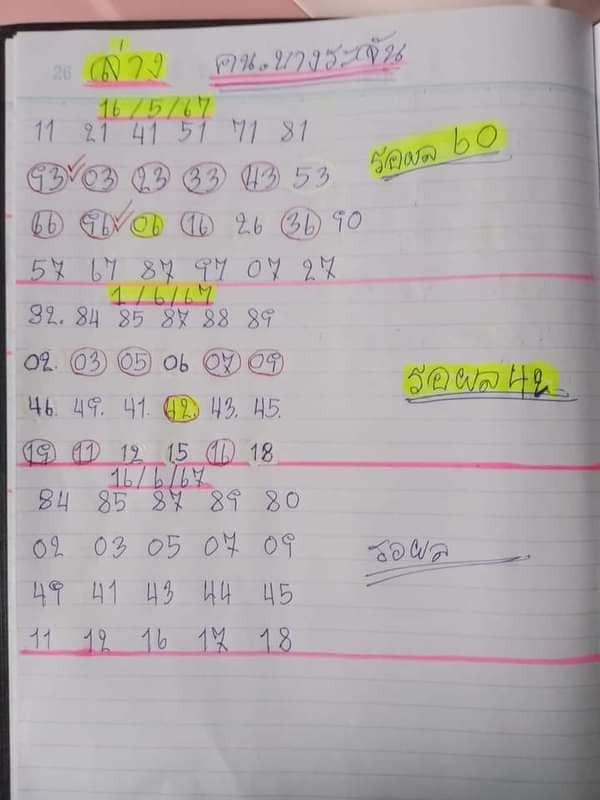 26 ล่าง คน.บางระจัน
16/5/67
11 21 41 51 71 81
93 03 23 33 43 53
รอผล 60
66 96 06 16 26 36 90
57 67 87 97 07 27
1/6/67
82. 84 85 87 88 89
02. 03 05 06 07 09
รอผล 42
46. 49. 41. 42. 43. 45.
19 11 12 15 16 18
16/6/67
84 85 87 89 80
02 03 05 07 09
รอผล
49 41 43 44 45
11 12 16 17 18